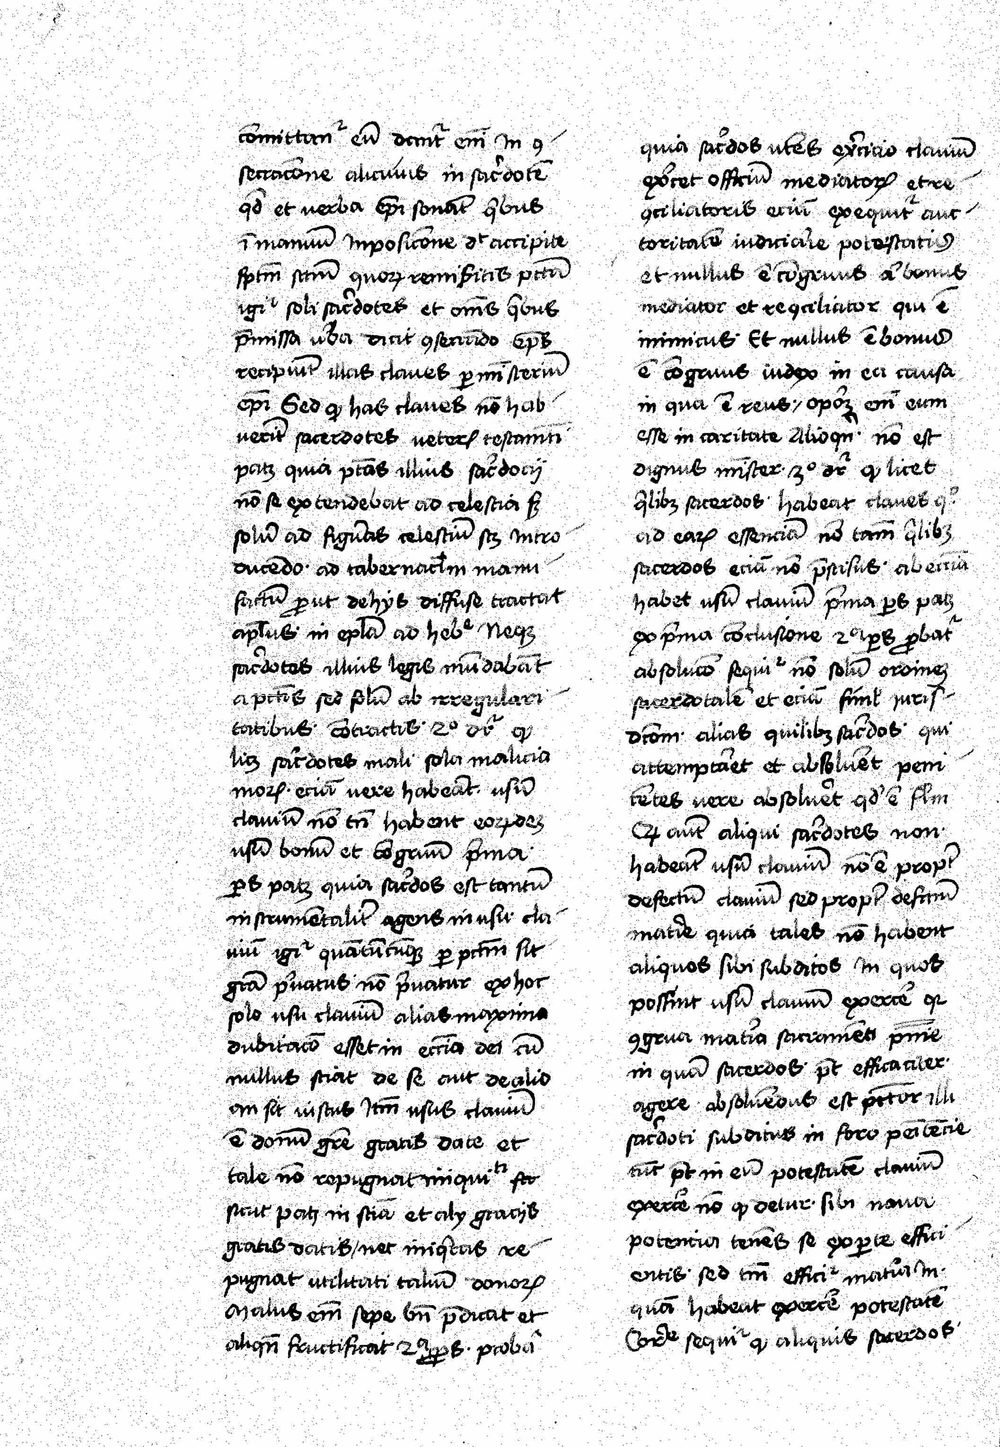 cōmittant᷑ eū dant᷑ em̄ In ꝯ-
secracōne alicuius in sac̄dotē
qd̄ et verba ep̄i sonāt qͥbus
ī manuū Inposicōne dt᷑ accipite
sp̄m sctū quorꝝ remisitis pctā
igit᷑ soli sac̄dotes et om̄s qͥbus
p̄missa v̄ba dicit ꝯsecrādo ep̄s
recipiūt illas claves ꝑ mīsteriū
ep̄i Sed ꝙ has claves nō hab-
uerīt sacerdotes veterꝭ testamēti
patꝫ quia ptās illius sac̄docij
nō se extendebat ad celestia sꝫ
solū ad figuras celestiū scꝫ intro-
ducendo ad tabernacl̄m manu
factū ꝓut de hijs diffuse tractat
apl̄us in epl̄a ad hebͤ Neqꝫ
sac̄dotes illius legis mūdabāt
a pctīs sed solū ab irregulari-
tatibus cōtractis 2º dr̄ ꝙ
licꝫ sac̄dotes mali sola malicia
morꝝ eciā vere habeāt usū
claviū nō tn̄ habent eorꝝdeꝫ
usū bonū et cōgruū p̄ma
ꝑs patꝫ quia sac̄dos est tantū
instrumētalit̄ agens in usu cla-
uiū igit᷑ quātūcūqꝫ ꝑ pctm̄ sit
grā p̄vatus nō p̄vatur ex hoc
solo usu claviū alias maxima
dubitacō esset in ecc̄ia dei cū
nullus sciat de se aut de alio
an sit iustus Itm̄ usus claviū
ē donū grē gratis date et
tale nō repugnat iniquitͭⁱ
sicut patꝫ in sciā et alijs graciis
gratis datis / nec iniqͥtas re-
pugnat utilitati taliū donorꝝ
Malus em̄ sepe bn̄ p̄dicat et
aliqn̄ fructificat 2ª ꝑs probat᷑
quia sac̄dos utēs ex̄cicio claviū
ex̄cet officiū mediatorꝭ et re-
ꝯciliatoris eciā exequit᷑ auc-
toritatē iudiciarie potestatis
et nullus ē cōgruus aͭ bonus
mediator et reꝯciliator qui ē
inimicus Et nullus ē bonus
ē cōgruus iudex in ea causa
in qua ē reus / oporꝫ em̄ eum
esse in caritate Alioqn̄ nō est
dignus mīster 3º dr̄ ꝙ licet
qͥlibꝫ sacerdos habeat claves qͦ
ad earꝝ essenciā nō tam̄ qͥlibꝫ
sacerdos eciā nō p̄scisus ab ecc̄ia
habet usū claviū p̄ma ꝑs patꝫ
ex p̄ma cōclusione 2ª ꝑs ꝓbat᷑
absolucō sequit᷑ nō solū ordineꝫ
sacerdotalē et eciā siml̄ iuris-
dcōm alias quilibꝫ sac̄dos qui
attemptaret et absoluēt peni-
tētes vere absoluēt qd̄ ē fl̄m
Qꝙ aut̄ aliqui sac̄dotes non
habeāt usū claviū nō ē propt̄
defectū claviū sed propt̄ defctū
mat̄ie quia tales nō habent
aliquos sibi subditos In quos
possint usū claviū exerce᷑ qꝛ
ꝯgrua mat̄ia sacramēti pn̄īe
in quā sacerdos pt̄ efficaciter
agere absoluēdus est pctōr illi
sac̄doti subditus in foro penitēcie
tūc pt̄ in eū potestatē claviū
exercē nō ꝙ detur sibi nova
potencia tenēs se ex ꝑte effici-
entis sed tm̄ effici᷑ mat̄ia In
quā habeat exercē potestatē
Corͬe sequit᷑ ꝙ aliquis sacerdos